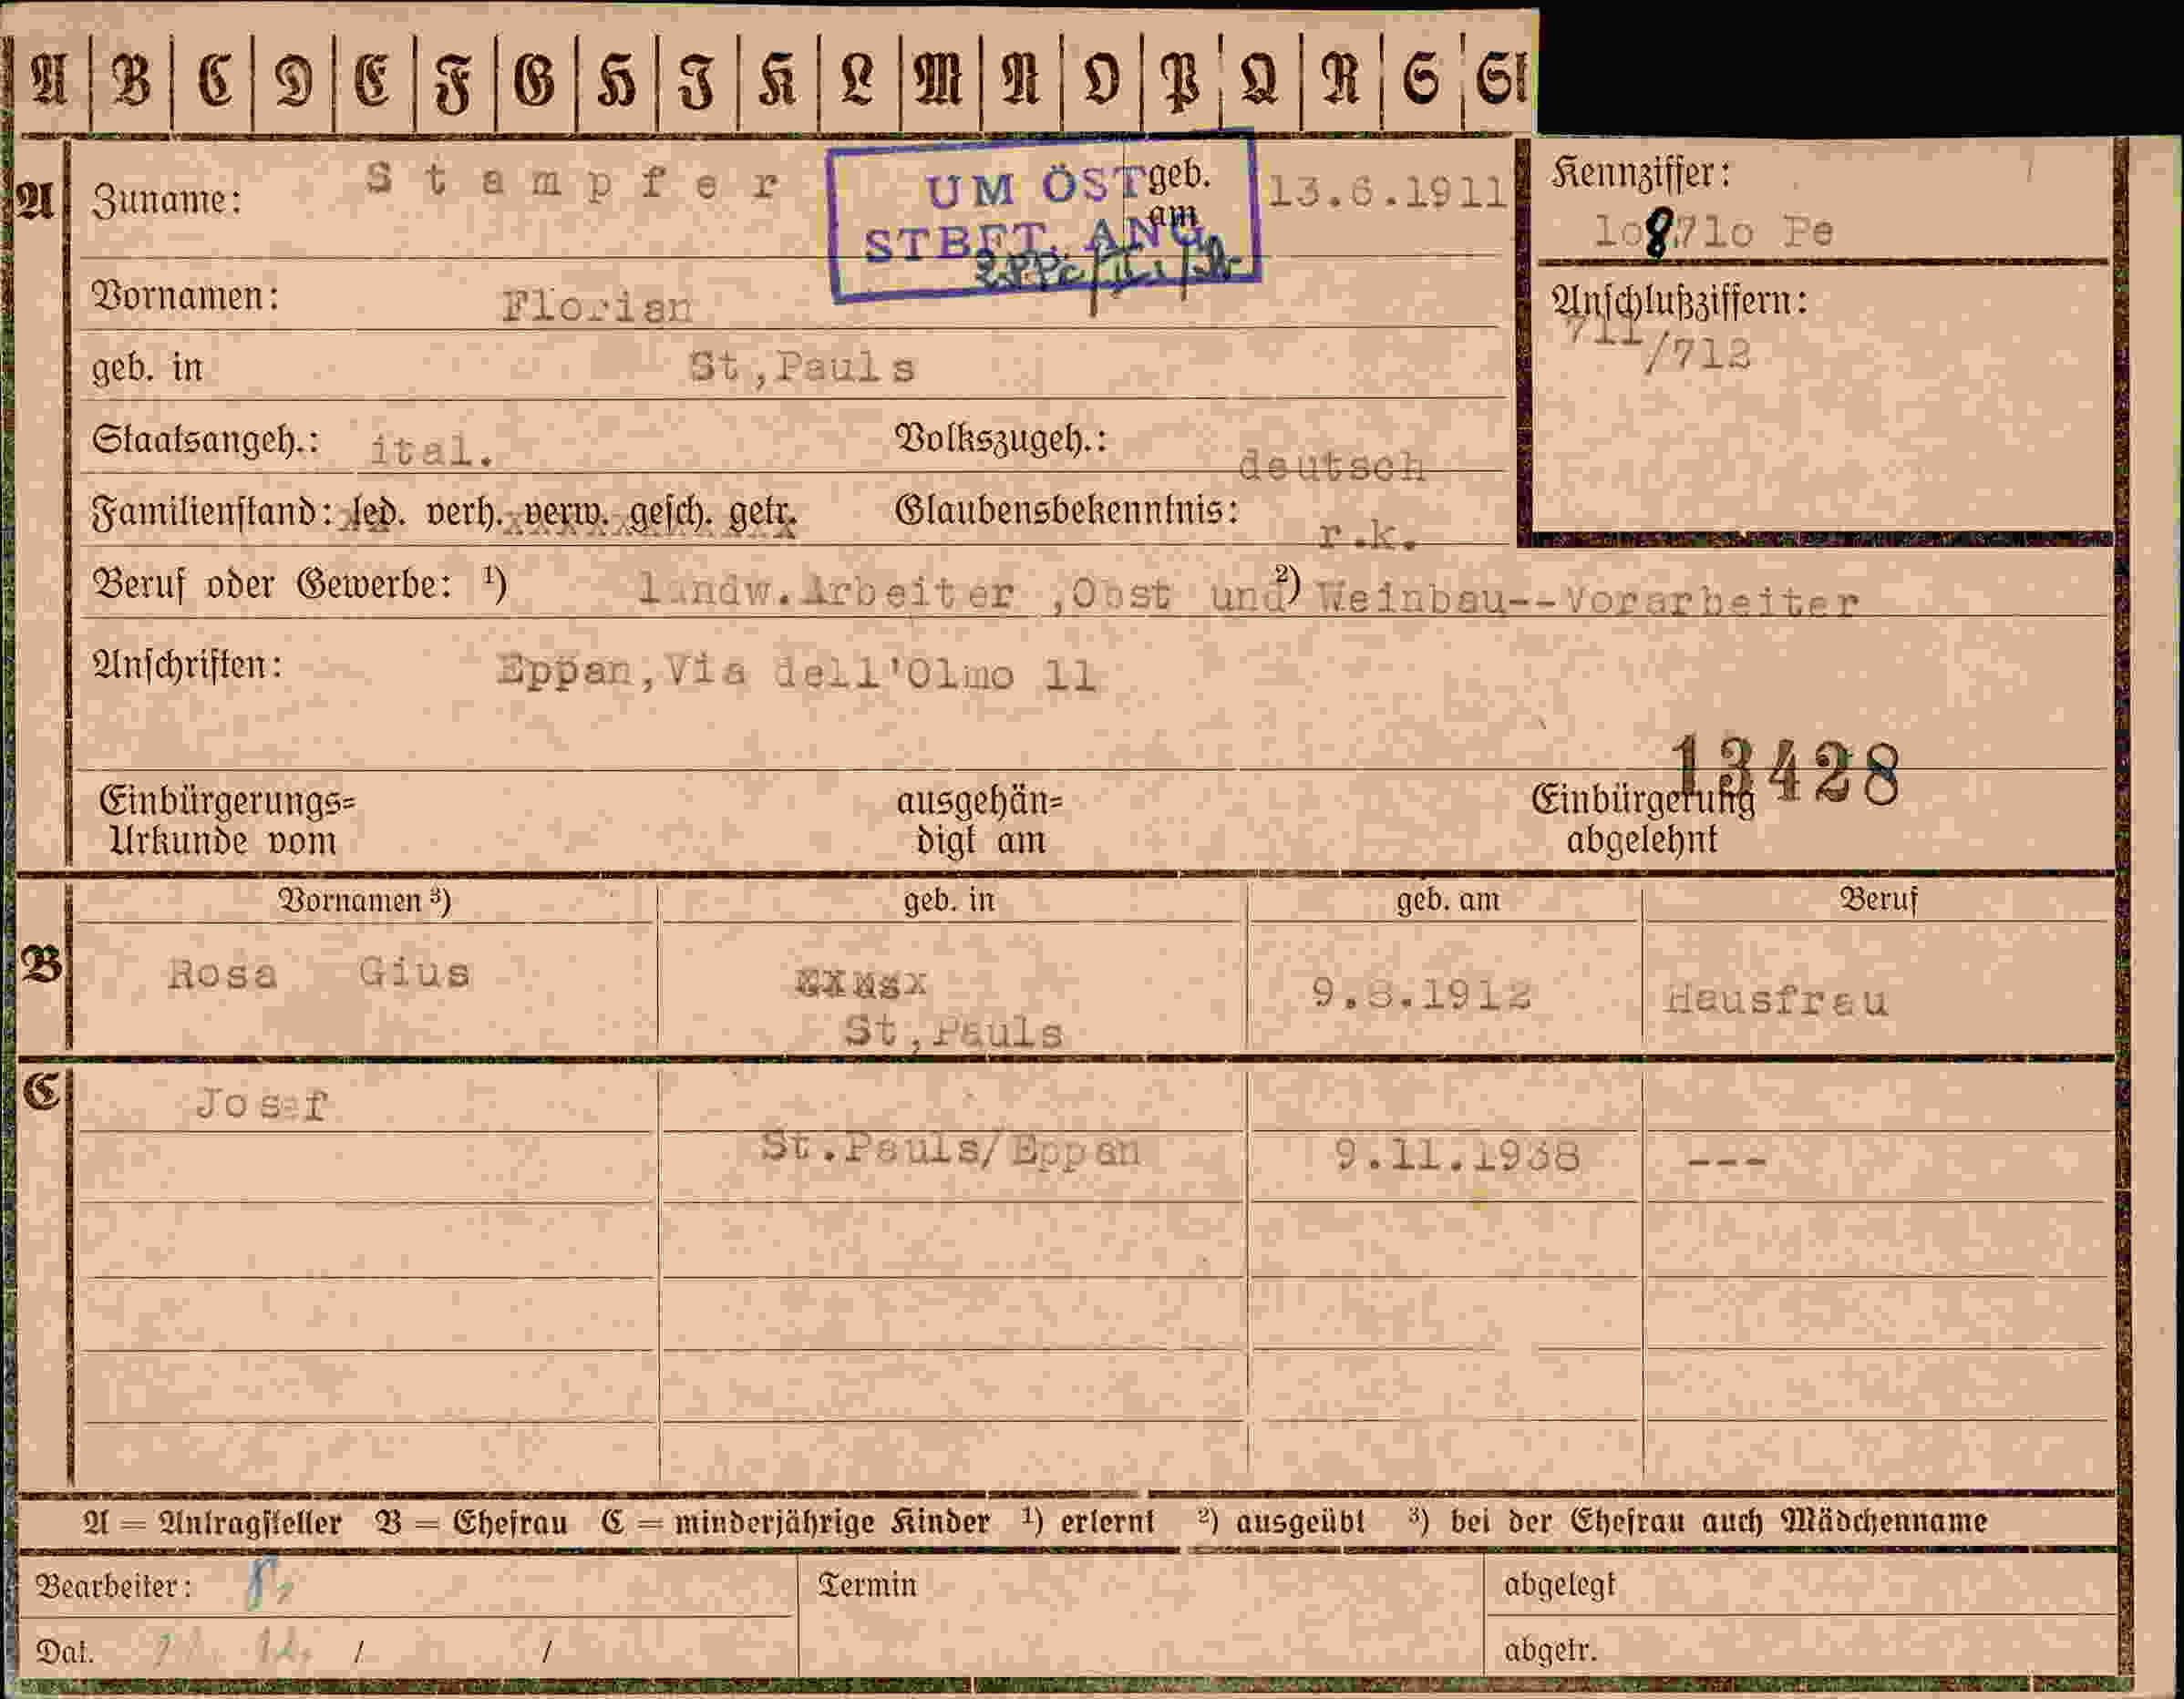 A B C D E F G H I K L M N O P Q R S St
A Zuname: Stampfer geb. am 13.6.1911
UM ÖST
STBFT. ANG.
Kennziffer:
108710 Pe
Vornamen: Florian
Anschlußziffern:
711/712
geb. in St,Pauls
Staatsangeh.: ital. Volkszugeh.: deutsch
Familienstand: led. verh. verw. gesch. getr. Glaubensbekenntnis: r.k.
Beruf oder Gewerbe: ¹) landw.Arbeiter ,Obst und ²) Weinbau--Vorarbeiter
Anschriften: Eppan,Via dell'Olmo 11
13428
Einbürgerungs= ausgehän= Einbürgerung
Urkunde vom digt am abgelehnt
Vornamen ³) geb. in geb. am Beruf
B Rosa Gius St,Pauls 9.8.1912 Hausfrau
C Josef St.Pauls/Eppan 9.11.1938 ---
A = Antragsteller B = Ehefrau C = minderjährige Kinder ¹) erlernt ²) ausgeübt ³) bei der Ehefrau auch Mädchenname
Bearbeiter: Termin abgelegt
Dat. / / abgetr.